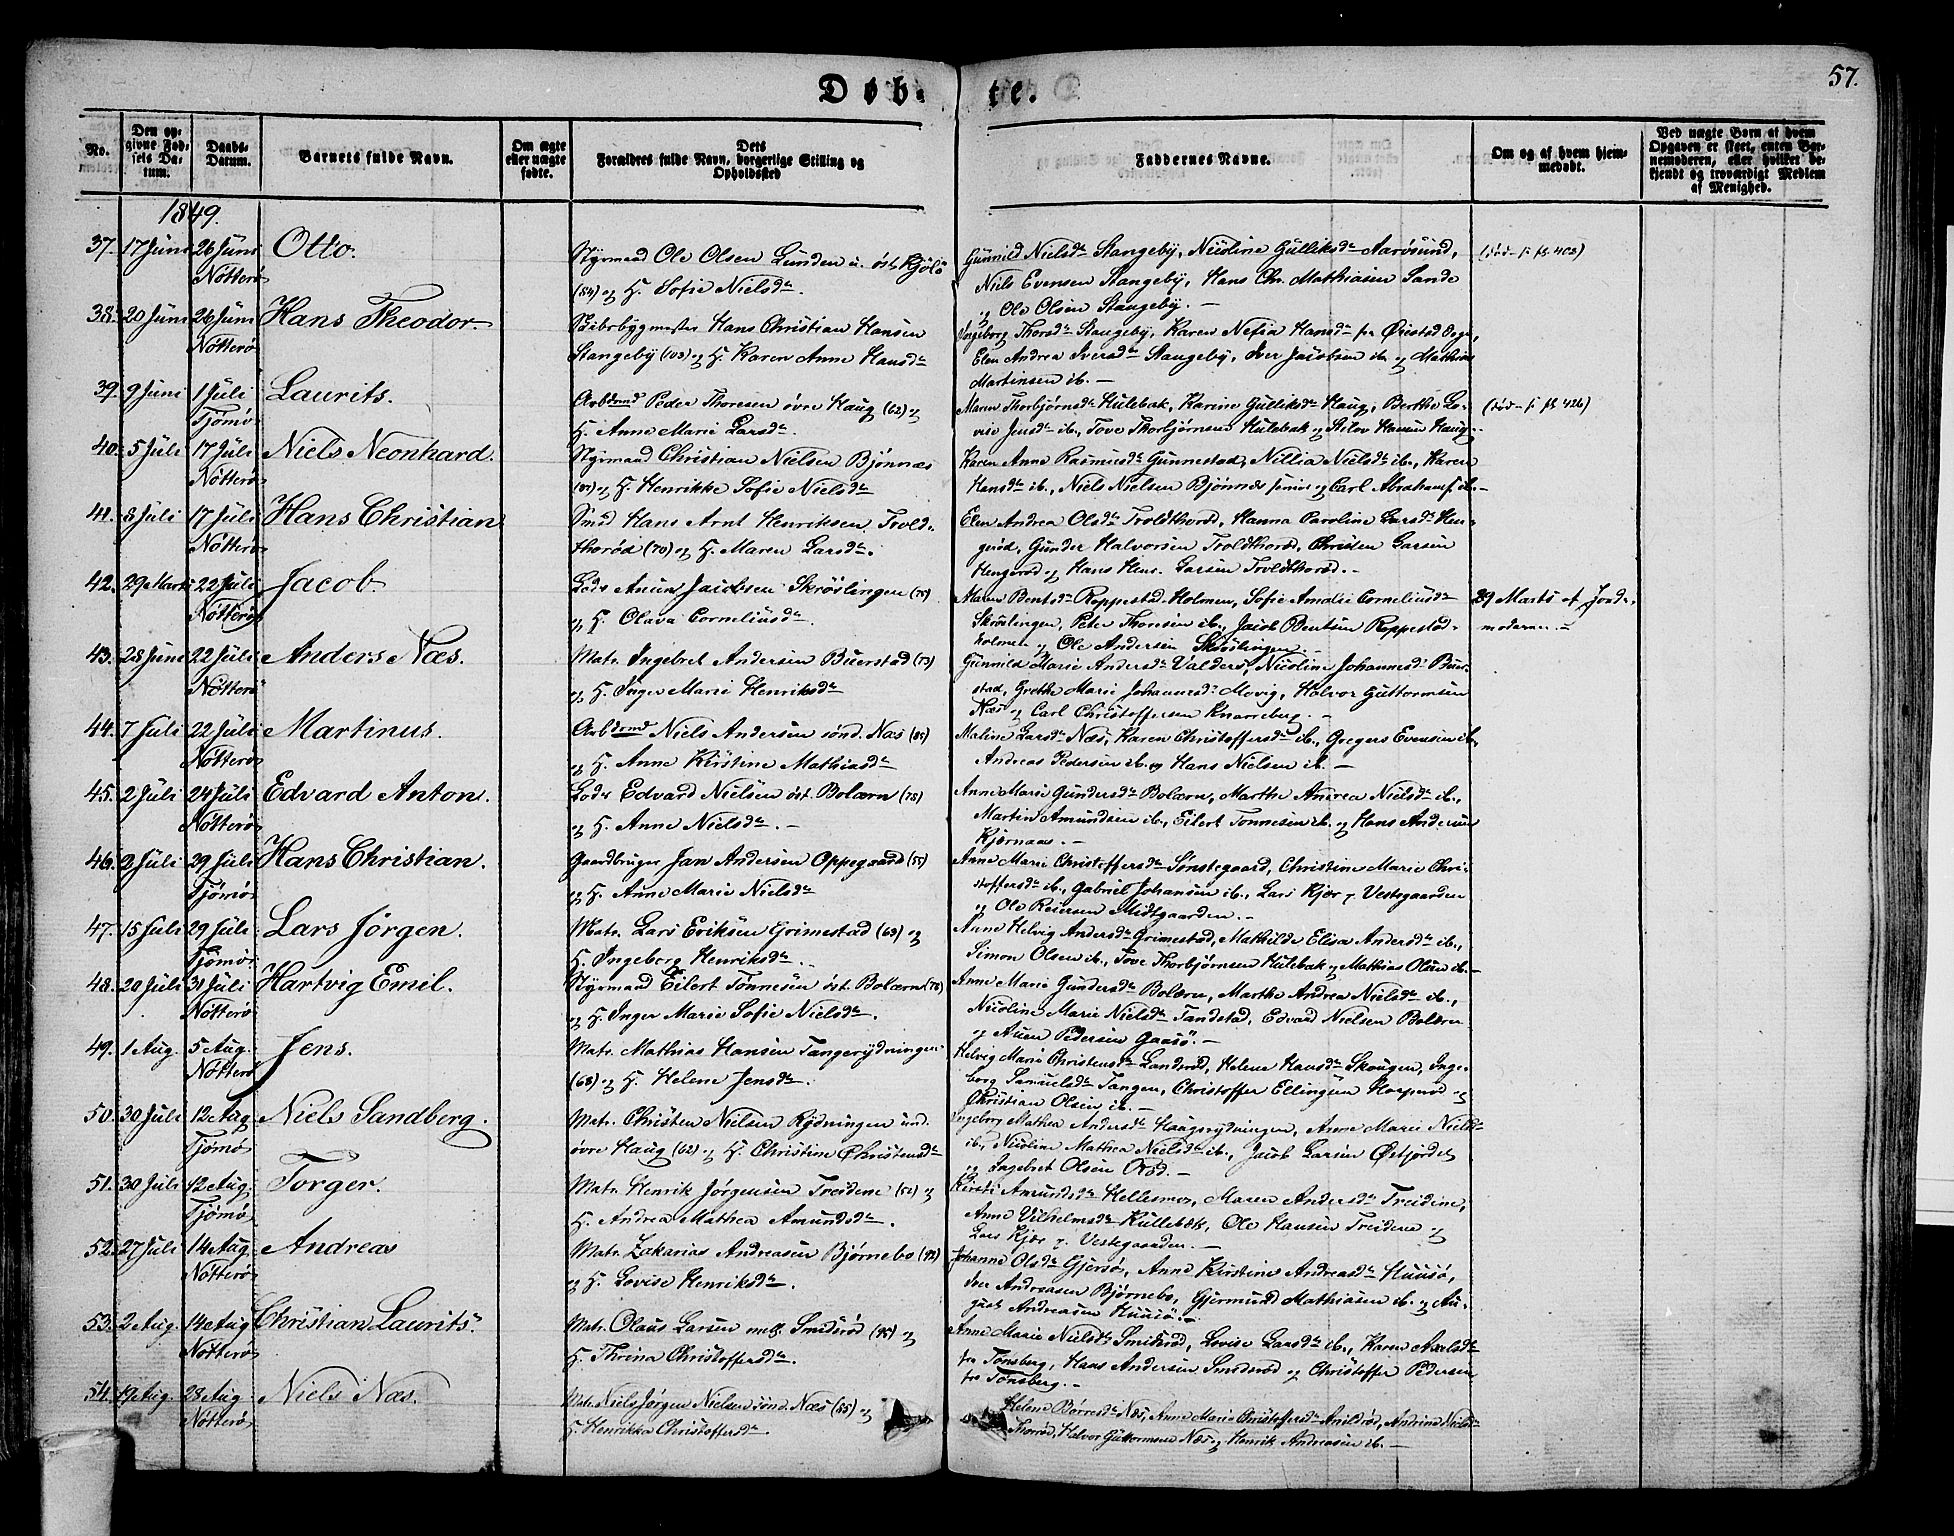 57.
Døb- te.
No.
Den opgivne Fødsels Datum.
Daabs-Datum.
Barnets fulde Navn.
Om ægte eller uægte fødte.
Dets Forældres fulde Navn, borgerlige Stilling og Opholdssted
Faddernes Navne.
Om og af hvem hjemmedøbt.
Ved uægte Børn af hvem Opgaven er skeet, enten Barnemoderen, eller hvilket bekjendt og troværdigt Medlem af Menighed.
1849.
37. 17 Juni 26 Juni Nötterö Otto.
Styrmand Ole Olsen Lunden u. öst. Kjölö
(84) og H. Sofie Nielsdr.
Gunnild Nielsdr Stangeby, Nicoline Gulliksdr Aarösund,
Niels Evensen Stangeby, Hans Chr. Mathiasen Sande
og Ole Olsen Stangeby. —
(död - s. pg. 403)
38. 20 Juni 26 Juni Nötterö Hans Theodor.
Skibsbygmester Hans Christian Hansen
Stangeby (103) og H. Karen Anne Hansdr
Ingeborg Thorsdr Stangeby, Karen Nefia Hansdr fra Øistad
Elen Andrea Iversdr Stangeby, Iver Jacobsen ib. og Mathias
Martinsen ib. —
39. 9 Juni 1 Juli Tjömö Laurits.
Arbdsmd Peder Thoresen övre Haug (62) og
H. Anne Marie Larsdr.
Maren Thorbjørnsdr Hulebak, Karine Gulliksdr Haug, Berthe Lo-
vise Jensdr ib., Tove Thorbjørnsen Hulebak og Hansen Haug.
(död - s. pg. 426)
40. 5 Juli 17 Juli Nötterö Niels Neonhard.
Styrmand Christian Nielsen Bjönnæs
og H. Henrikke Sofie Nielsdr
Karen Anne Rasmusdr Gunnestad, Nillia Nielsdr ib., Karen
Hansdr ib., Niels Nielsen Bjönnæs senior og Carl Abrahams. ib. —
41. 8 Juli 17 Juli Nötterö Hans Christian
Smed Hans Arnt Henriksen Trold-
thoröd (70) og H. Maren Larsdr.
Elen Andrea Olsdr Troldthoröd, Hanna Caroline Larsdr Hen-
geröd, Gunder Halvorsen Troldthoröd, Christen Larsen
Hengeröd og Hans Hen. Larsen Troldthoröd. —
42. 29 Marts 22 Juli Nötterö Jacob.
Lods Anun Jacobsen Skröslingen
og H. Olava Corneliusdr.
Maren Bentsdr Roppestad Holmen, Sofie Amalie Corneliusdr
Skröslingen, Peter Thoresen ib., Jacob Bentsen Roppestad-
holmen og Ole Andersen Skröslingen. —
29 Marts af Jorde-
moderen. —
43. 28 Juni 22 Juli Nötterö Anders Næs.
Matr. Ingebret Andersen Buerstad (73)
og H. Inger Marie Henriksdr
Gunnild Marie Andersdr Valderö, Nicoline Johannesdr Buer-
stad, Grethe Marie Johannesdr Movig, Halvor Guttormsen
Næs og Carl Christoffersen Knarreberg. —
44. 7 Juli 22 Juli Nötterö Martinus.
Arbdsmd Niels Andersen sönd. Næs (85)
og H. Anne Kirstine Mathiasdr
Maline Larsdr Næs, Karen Christoffersdr ib., Gregers Evensen ib.,
Andreas Pedersen ib. og Hans Nielsen ib. —
45. 2 Juli 24 Juli Nötterö Edvard Anton.
Lods Edvard Nielsen öst. Bolærn (78)
og H. Anne Nielsdr. —
Anne Marie Gundersdr Bolærn, Marthe Andrea Nielsdr ib.,
Martin Amundsen ib., Eilert Tönnesen ib. og Hans Andersen
Kjørnaas. —
46. 2 Juli 29 Juli Tjömö Hans Christian.
Gaardbruger Jan Andersen Oppegaard (55)
og H. Anne Marie Nielsdr
Anne Marie Christoffersdr Sönstegaard, Christine Marie Chri-
stoffersdr ib., Gabriel Johansen ib., Lars Kjær p. Vestegaarden
og Ole Reiersen Midtgaarden. —
47. 15 Juli 29 Juli Tjömö Lars Jörgen.
Matr. Lars Eriksen Grimestad (63) og
H. Ingeborg Henriksdr. —
Anne Helvig Andersdr Grimestad, Mathilde Elisa Andersdr ib.,
Simon Olsen ib., Tove Thorbjørnsen Hulebak og Mathias Olsen ib. —
48. 20 Juli 31 Juli Nötterö Hartvig Emil.
Styrmand Eilert Tönnesen öst. Bolærn (78)
og H. Inger Marie Sofie Nielsdr.
Anne Marie Gundersdr Bolærn, Marthe Andrea Nielsdr ib.,
Nicoline Marie Nielsdr Tandstad, Edvard Nielsen Bolærn
og Anun Pedersen Gaasö. —
49. 1 Aug. 5 Aug. Nötterö Jens.
Matr. Mathias Hansen Tangerydningen
(68) og H. Helene Jensdr.
Helvig Marie Christensdr Landeröd, Helene Hansdr Skougen, Inge-
borg Samuelsdr Tangen, Christoffer Ellingsen og
Christian Olsen ib. —
50. 30 Juli 12 Aug Tjömö Niels Sandberg.
Matr. Christen Nielsen Rydningen und.
övre Haug (62) og H. Christine Christensdr
Ingeborg Mathea Andersdr Haugrydningen, Anne Marie Nielsdr
ib., Nicoline Mathea Nielsdr ib., Jacob Larsen Østjordet
og Ingebret Olsen —
51. 30 Juli 12 Aug. Tjömö Torger.
Matr. Henrik Jörgensen Treidene (52) og
H. Andrea Mathea Amundsdr.
Kirsti Amundsdr Hellesmo, Maren Andersdr Treidene,
Anne Vilhelmsdr Kullebæk, Ole Hansen Treidene og
Lars Kjær p. Vestegaarden. —
52. 27 Juli 14 Aug. Nötterö Andreas
Matr. Zakarias Andreasen Bjørnebo (92)
og H. Lovise Henriksdr.
Johanne Olsdr Gjersö, Anne Kirstine Andreasdr Huusö,
Iver Andreasen Björnebo, Gjermund Mathiasen ib. og Au-
gust Andreasen Huusö. —
53. 2 Aug. 14 Aug Nötterö Christian Laurits.
Matr. Olaus Larsen mell. Smideröd (95) og
H. Thrina Christoffersdr.
Anne Marie Nielsdr Smideröd, Lovise Larsdr ib., Karen Axelsdr
fra Tönsberg, Hans Andersen Smideröd og Christoffer Pedersen
fra Tönsberg. —
54. 19 Aug. 28 Aug Nötterö Niels Næs.
Matr. Niels Jörgen Nielsen sönd. Næs (85) og
H. Henrikka Christoffersdr.
Helene Börresdr Næs, Anne Marie Christoffersdr Arildröd, Andrine Nielsdr
Thoröd, Halvor Guttormsen Næs og Henrik Andreasen ib. —